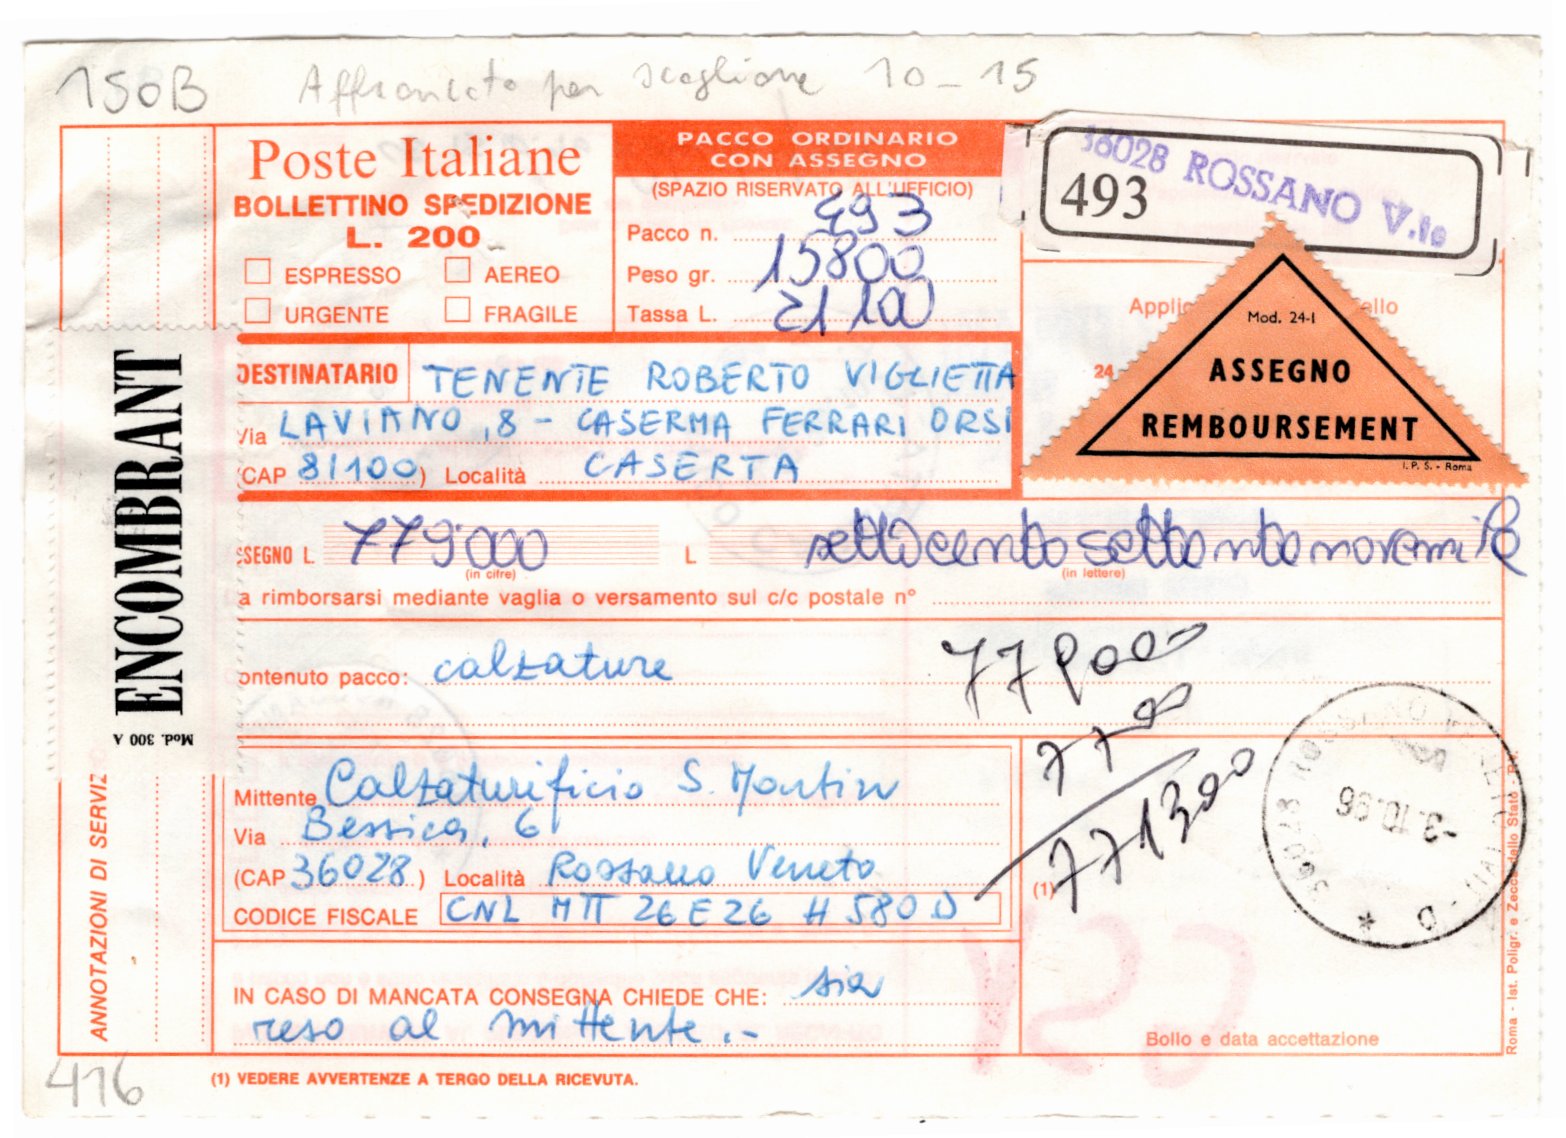 150B Affrancato per scaglione 10-15
Poste Italiane
BOLLETTINO SPEDIZIONE
L. 200
ESPRESSO AEREO
URGENTE FRAGILE
PACCO ORDINARIO
CON ASSEGNO
(SPAZIO RISERVATO ALL'UFFICIO)
Pacco n. 493
Peso gr. 15800
Tassa L. 21100
36028 ROSSANO V.to
493
Mod. 24-I
ASSEGNO
REMBOURSEMENT
I. P. S. - Roma
Applic ello
24
ENCOMBRANT
Mod. 300 A
DESTINATARIO TENENTE ROBERTO VIGLIETTA
Via LAVIANO, 8 - CASERMA FERRARI ORSI
(CAP 81100) Località CASERTA
SSEGNO L. 779'000 L. settecentosettantanovemila
(in cifre) (in lettere)
a rimborsarsi mediante vaglia o versamento sul c/c postale n°
ontenuto pacco: calzature
779000
7700
771300
Mittente Calzaturificio S. Martin
Via Bessica, 6
(CAP 36028) Località Rossano Veneto
CODICE FISCALE CNL MTT 26E26 H580D
(1)
36028 ROSSANO VENETO (VI)
-3.10.96
* D
IN CASO DI MANCATA CONSEGNA CHIEDE CHE: sia
reso al mittente.-
Bollo e data accettazione
ANNOTAZIONI DI SERVIZ
Roma - Ist. Poligr. e Zecca dello Stato - P.V.
416
(1) VEDERE AVVERTENZE A TERGO DELLA RICEVUTA.